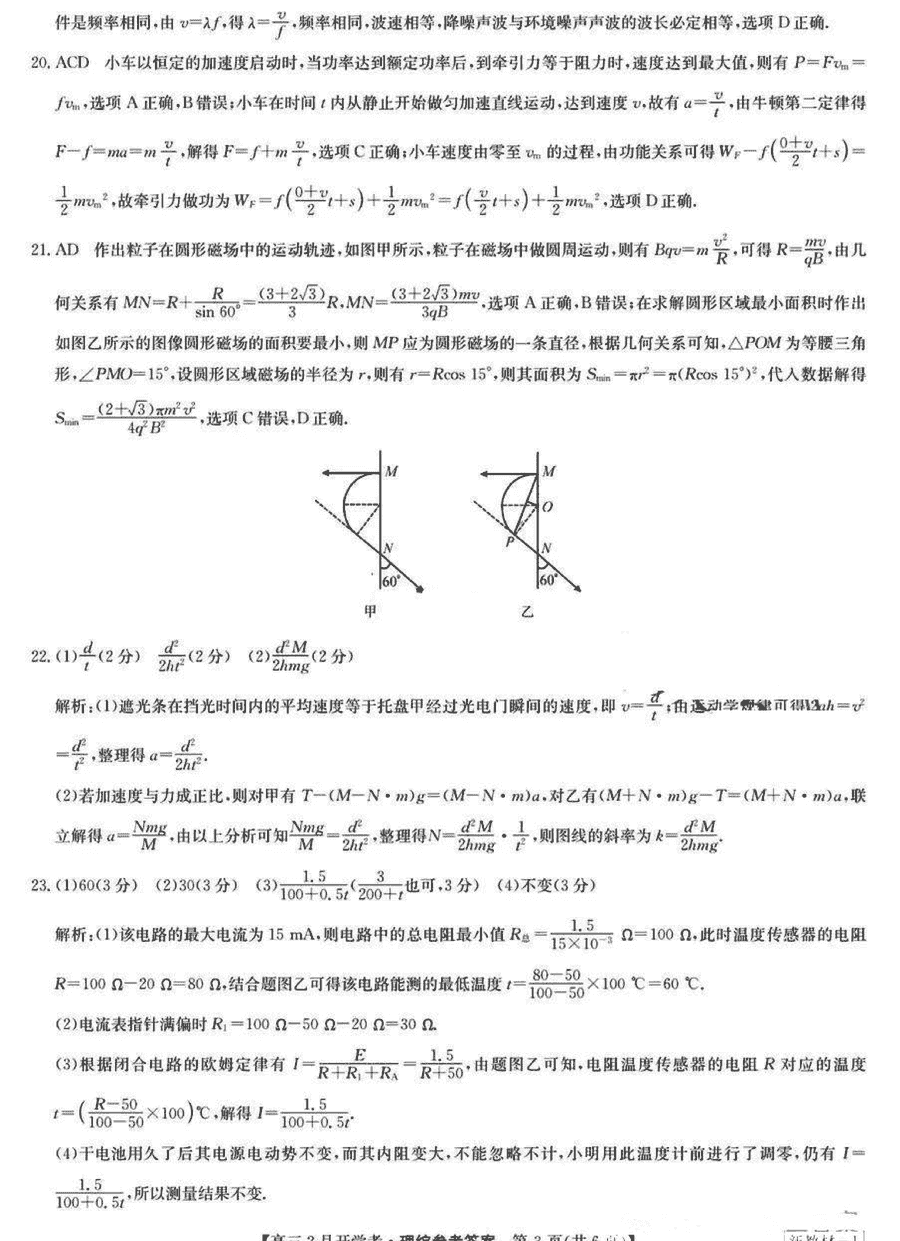 件是频率相同,由 v=λf,得 λ=v/f,频率相同,波速相等,降噪声波与环境噪声声波的波长必定相等,选项 D 正确.
20. ACD 小车以恒定的加速度启动时,当功率达到额定功率后,到牵引力等于阻力时,速度达到最大值,则有 P=Fvₘ=
fvₘ,选项 A 正确,B 错误;小车在时间 t 内从静止开始做匀加速直线运动,达到速度 v,故有 a=v/t,由牛顿第二定律得
F-f=ma=m v/t,解得 F=f+m v/t,选项 C 正确;小车速度由零至 vₘ 的过程,由功能关系可得 W_F-f((0+v)/2 t+s)=
1/2 mvₘ²,故牵引力做功为 W_F=f((0+v)/2 t+s)+1/2 mvₘ²=f(v/2 t+s)+1/2 mvₘ²,选项 D 正确.
21. AD 作出粒子在圆形磁场中的运动轨迹,如图甲所示,粒子在磁场中做圆周运动,则有 Bqv=m v²/R,可得 R=mv/qB,由几
何关系有 MN=R+R/sin 60°=(3+2√3)/3 R,MN=(3+2√3)mv/3qB,选项 A 正确,B 错误;在求解圆形区域最小面积时作出
如图乙所示的图像圆形磁场的面积要最小,则 MP 应为圆形磁场的一条直径,根据几何关系可知,△POM 为等腰三角
形,∠PMO=15°,设圆形区域磁场的半径为 r,则有 r=Rcos 15°,则其面积为 S_min=πr²=π(Rcos 15°)²,代入数据解得
S_min=(2+√3)πm²v²/4q²B²,选项 C 错误,D 正确.
M
N
60°
甲
M
O
P
N
60°
乙
22. (1)d/t(2 分) d²/2ht²(2 分) (2)d²M/2hmg(2 分)
解析:(1)遮光条在挡光时间内的平均速度等于托盘甲经过光电门瞬间的速度,即 v=d/t;由运动学规律可得 2ah=v²
=d²/t²,整理得 a=d²/2ht².
(2)若加速度与力成正比,则对甲有 T-(M-N·m)g=(M-N·m)a,对乙有(M+N·m)g-T=(M+N·m)a,联
立解得 a=Nmg/M,由以上分析可知 Nmg/M=d²/2ht²,整理得N=d²M/2hmg·1/t²,则图线的斜率为 k=d²M/2hmg.
23. (1)60(3 分) (2)30(3 分) (3)1.5/(100+0.5t)(3/(200+t)也可,3 分) (4)不变(3 分)
解析:(1)该电路的最大电流为 15 mA,则电路中的总电阻最小值 R总=1.5/(15×10⁻³) Ω=100 Ω,此时温度传感器的电阻
R=100 Ω-20 Ω=80 Ω,结合题图乙可得该电路能测的最低温度 t=(80-50)/(100-50)×100 ℃=60 ℃.
(2)电流表指针满偏时 R₁=100 Ω-50 Ω-20 Ω=30 Ω.
(3)根据闭合电路的欧姆定律有 I=E/(R+R₁+R_A)=1.5/(R+50),由题图乙可知,电阻温度传感器的电阻 R 对应的温度
t=((R-50)/(100-50)×100)℃,解得 I=1.5/(100+0.5t).
(4)干电池用久了后其电源电动势不变,而其内阻变大,不能忽略不计,小明用此温度计前进行了调零,仍有 I=
1.5/(100+0.5t),所以测量结果不变.